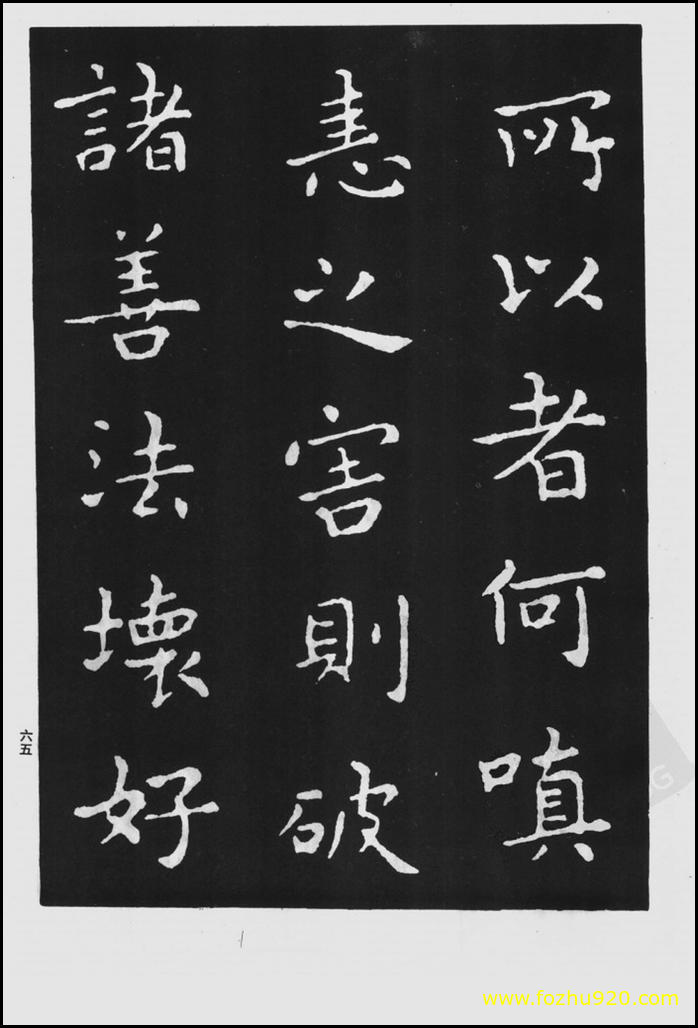 所以者何嗔
恚之害則破
諸善法壞好
六五
www.fozhu920.com